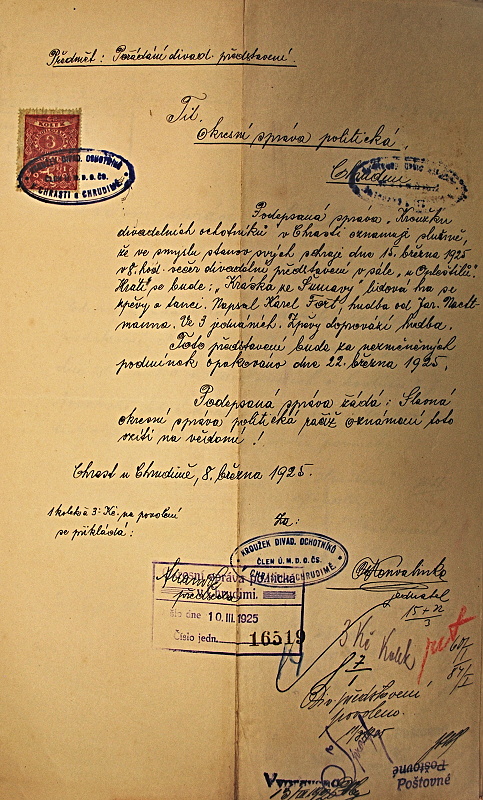 Předmět: Pořádání divad. představení.
Tit.
Okresní správa politická,
KOLEK
3
KROUŽEK DIVAD. OCHOTNÍKŮ
ČLEN Ú.M.D.O.ČS.
V CHRASTI u CHRUDIMĚ.
Chrudim.
Podepsaná správa „Kroužku
divadelních ochotníků" v Chrasti oznamuje slušně,
že ve smyslu stanov svých sehraje dne 15. března 1925
v 8. hod. večer divadelní představení v sále „u Oploštilů".
Hráti se bude: „Kráska ze Šumavy" lidová hra se
zpěvy a tanci. Napsal Karel Fořt, hudba od Jar.
manna. Ve 3 jednáních. Zpěvy doprovází hudba.
Toto představení bude za nezměněných
podmínek opakováno dne 22. března 1925.
Podepsaná správa žádá: Slavná
okresní správa politická račiž oznámení toto
vzíti na vědomí!
Chrast u Chrudimě, 8. března 1925.
1 kolek à 3 Kč. na povolení
se přikládá:
Za:
KROUŽEK DIVAD. OCHOTNÍKŮ
ČLEN Ú.M.D.O.ČS.
CHRUDIMĚ.
Okresní správa politická
v Chrudimi.
předseda
jednatel
došlo dne 10. III. 1925
Číslo jedn. 16519
15 + 22
3
3 Kč Kolek
7
Div. představení
povoleno.
Poštovné
Poštovné